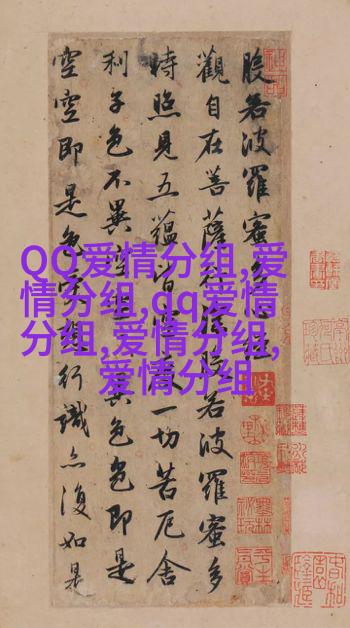 QQ爱情分组,爱
情分组,qq爱情
分组,爱情分组,
爱情分组
般若波羅蜜多心經
觀自在菩薩行深般若波羅蜜多
時照見五蘊皆空度一切苦厄舍
利子色不異空空不異色色即是
空空即是色受想行識亦復如是